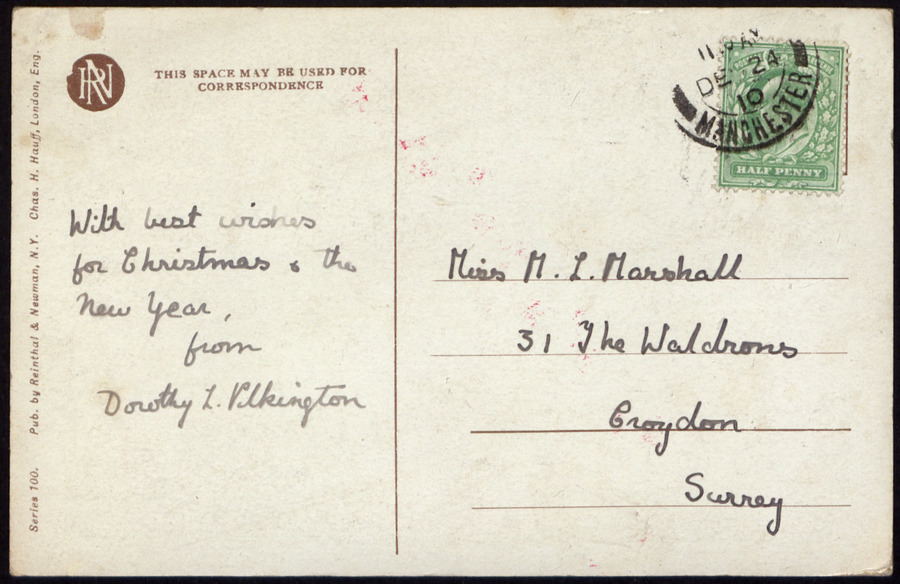 Series 100. Pub. by Reinthal & Newman, N.Y. Chas. H. Hauff, London, Eng.
RN
THIS SPACE MAY BE USED FOR
CORRESPONDENCE
With best wishes
for Christmas & the
New Year,
from
Dorothy L. Pilkington
DE 24
10
MANCHESTER
HALF PENNY
Miss M. L. Marshall
31 The Waldrons
Croydon
Surrey